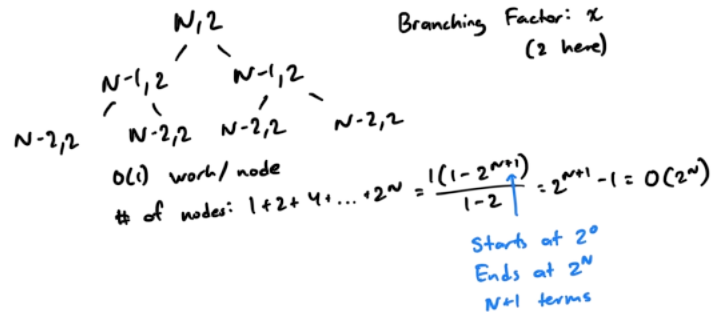 N,2
Branching Factor: x
(2 here)
N-1,2 N-1,2
N-2,2 N-2,2 N-2,2 N-2,2
O(1) work/node
# of nodes: 1+2+4+...+2^N = 1(1-2^(N+1))/(1-2) = 2^(N+1) -1 = O(2^N)
Starts at 2^0
Ends at 2^N
N+1 terms